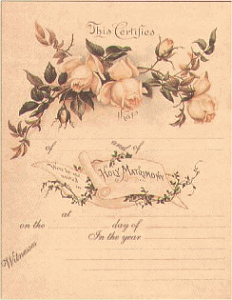 This Certifies
That
of and of
were by me united in
HOLY MATRIMONY
at
on the day of
In the year
Witnesses